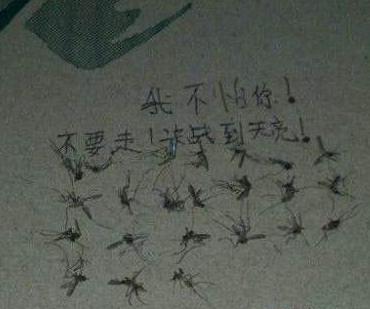 我不怕你!
不要走!决战到天亮!